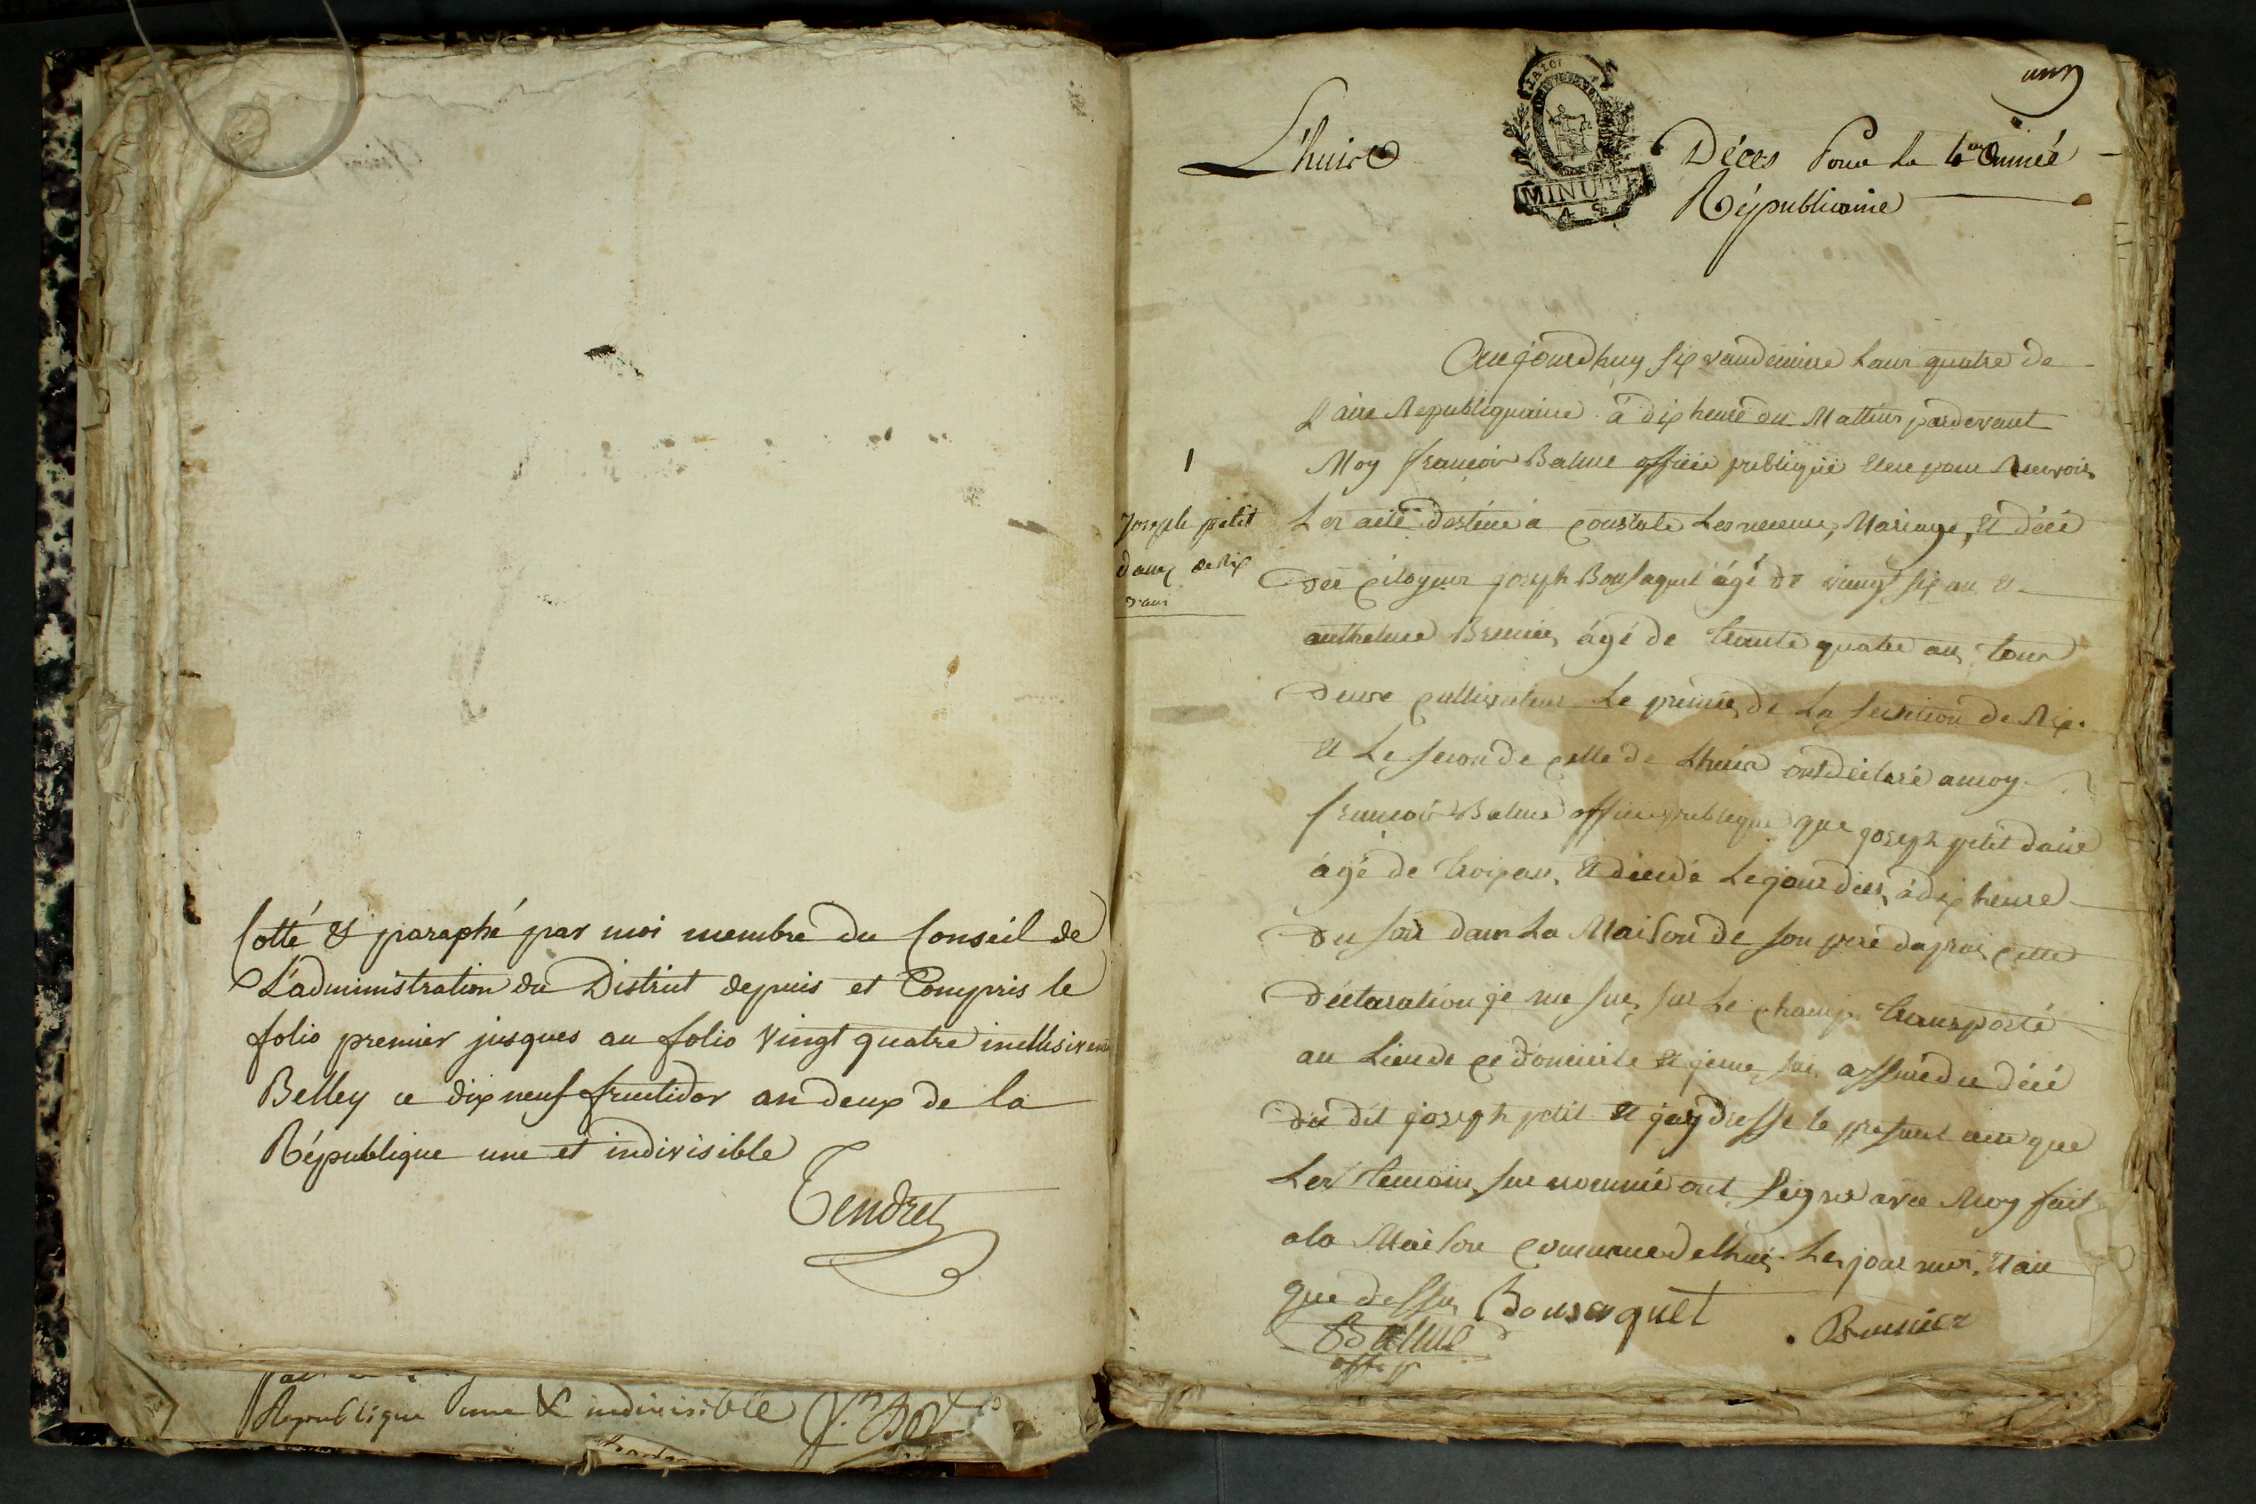 Cotté & paraphé par moi membre du Conseil de
L'administration du District depuis et Compris le
folio premier jusques au folio Vingt quatre
Belley ce dix neuf fructidor an deux de la
République une et indivisible
Tendret
Republique une & indivisible
L'huis
MINUTE
Déces Pour la 4me Année
Républicaine
1
Joseph petit
de Rix
3 ans
Aujourdhuy six vandemiere quatre de
Republiquaine à dix heure du Mattin pardevant
Moy françois Balme publique
Les acte destiné a constate Les Mariage, et décé
des citoyens joseph Bonsaquet âgé de vaingt six an et
anthelme Brunier âgé de trante quatre an tour
deux cultivateur Le premier de La section de Rix
et Le second de celle de Lhuis ont déclaré a moy
françois Balme publique que joseph petit
âgé de trois an, et décédé Le jour dier, à dix heure
du soir dans La Maison de son pere daprai cette
déclaration je me sui sur Le champ transporté
au Lieu de ce domicile et je me sui assuré du décé
du dit joseph petit et jay dressé le present acte que
Les temoins sus nommé ont Signé avec Moy fait
a la Maison commune de Lhuis Les jour moi, et an
que dessu Bonsaquet Brunier
Balme
off. p